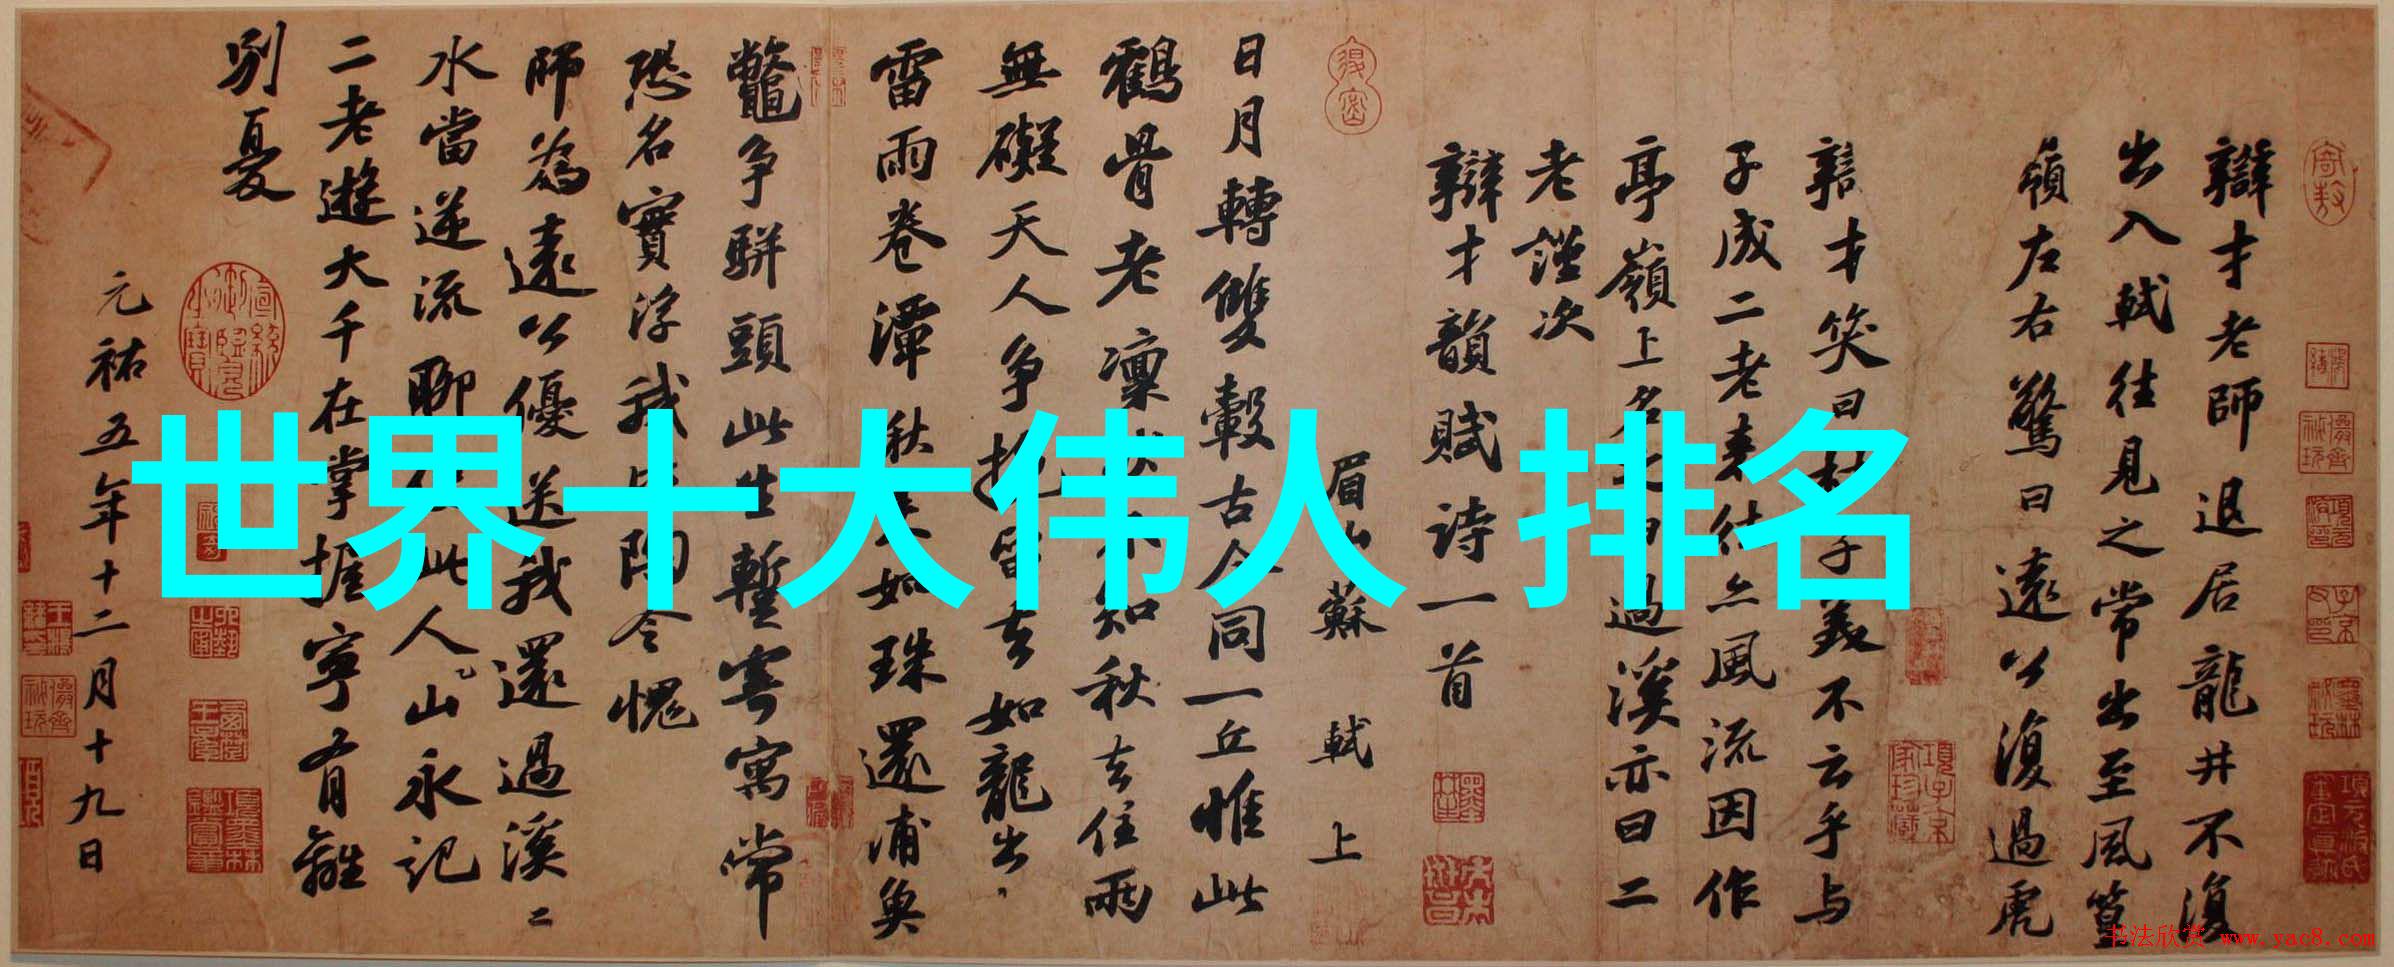 辯才老師退居龍井不復
出入軾往見之常出至風篁
嶺左右驚曰遠公復過虎
辯才笑曰杜子美不云乎与
子成二老來往亦風流因作
亭嶺上名之曰過溪亦曰二
老謹次
辯才韻賦詩一首
眉山蘇軾上
日月轉雙轂古今同一丘惟此
鶴骨老凜然不知秋去住兩
無礙天人爭挽留去如龍出
雷雨卷潭湫來如珠還浦魚
鼈爭駢頭此生暫寄寓常
恐名實浮我比陶令愧
師為遠公優送我還過溪二
水當逆流聊使此人山永記
二老遊大千在掌握寧有離
別憂
元祐五年十二月十九日
世界十大伟人 排名
书法欣赏 www.yac8.com